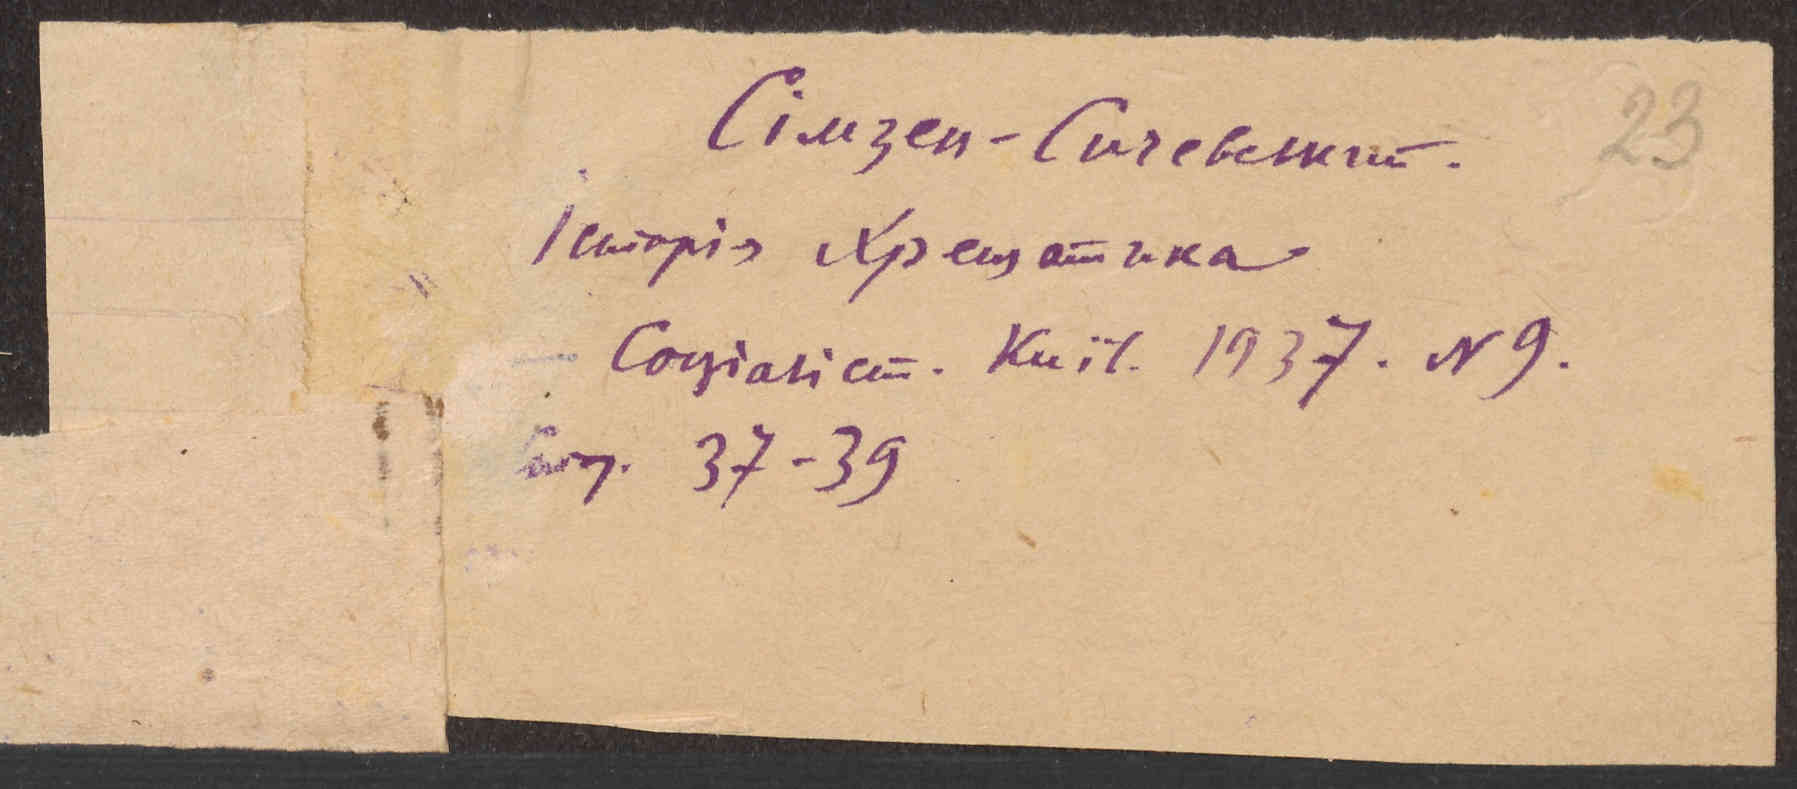 23
Сімзен-Сичевський.
Історія Хрещатика
Соціаліст. Київ. 1937. № 9.
Стор. 37-39